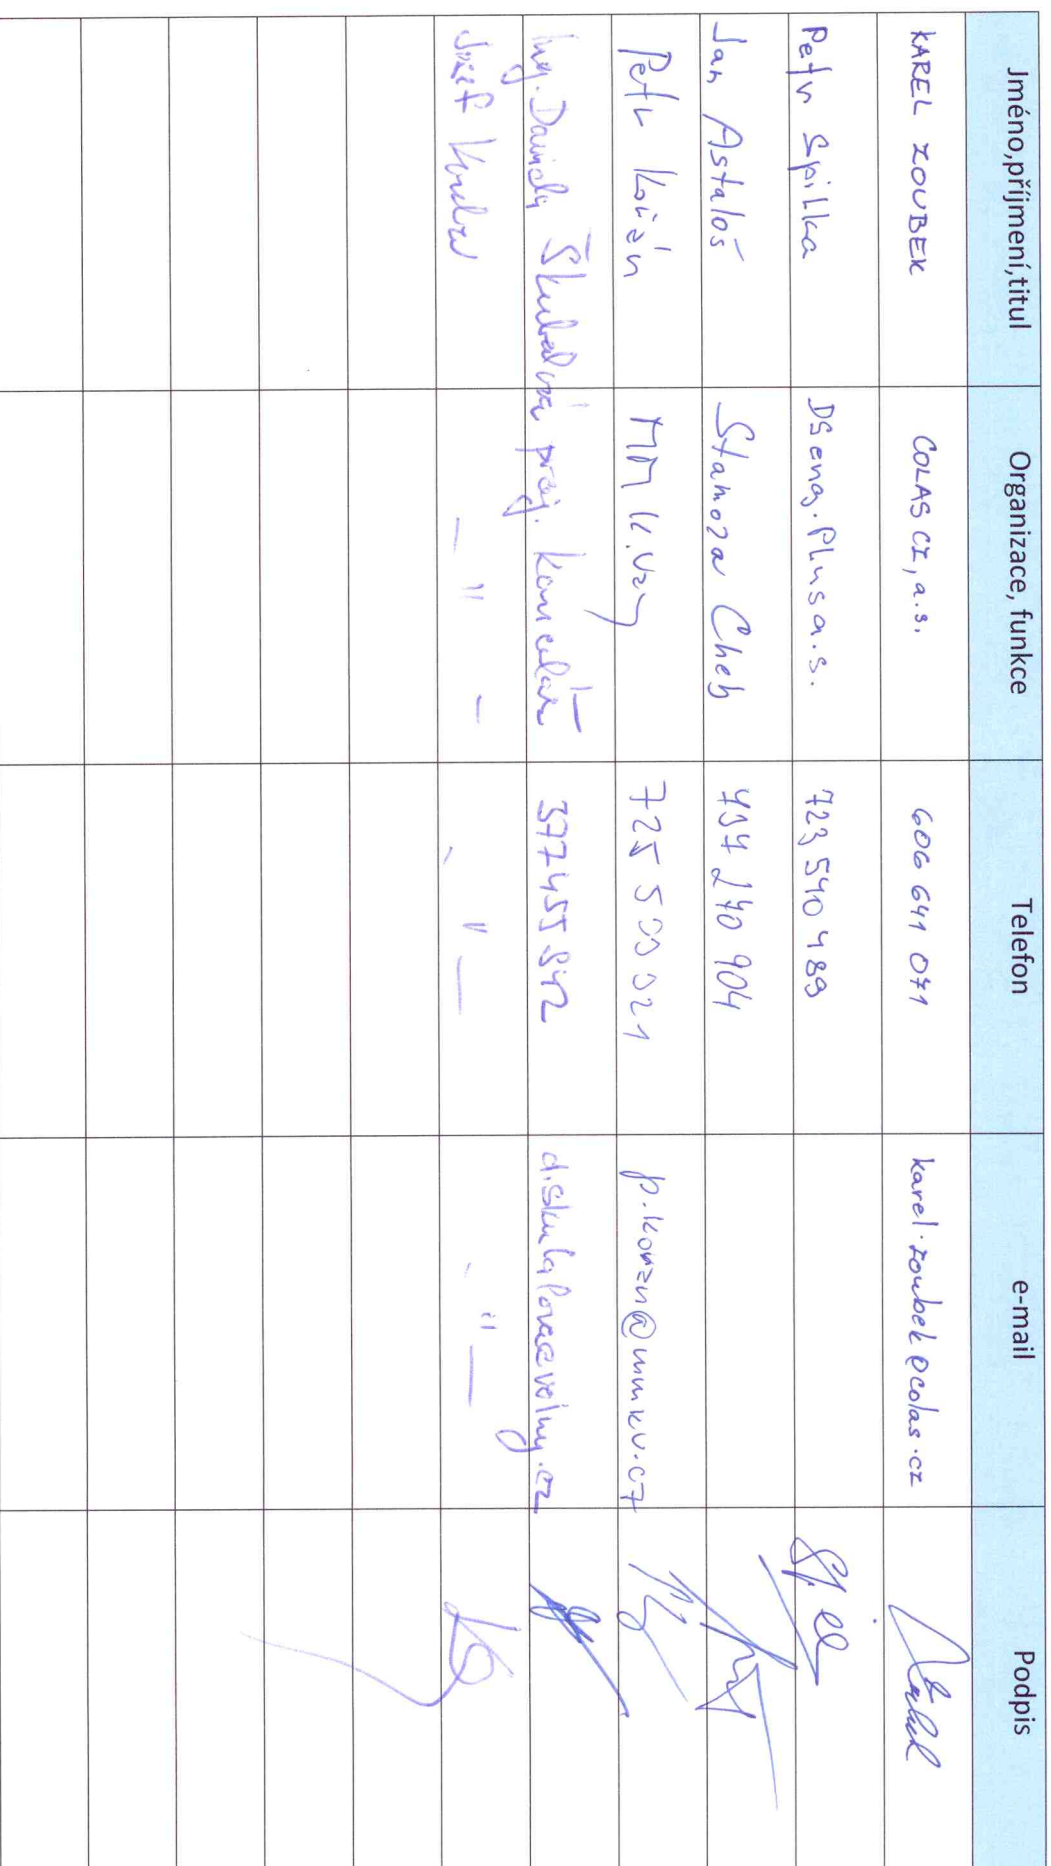 Jméno,příjmení,titul Organizace, funkce Telefon e-mail Podpis
KAREL ZOUBEK COLAS CZ, a.s. 606 641 071 karel.zoubek@colas.cz
Petr Spilka DSeng. Plus a.s. 723 540 489
Jan Astaloš Stanoza Cheb 240 904
Petr MM K.Vary 725 5 021 p.korzn@mmkv.cz
Ing. Daniela Škubalová proj. kancelář 377455 842
Josef — " — — " — — " —